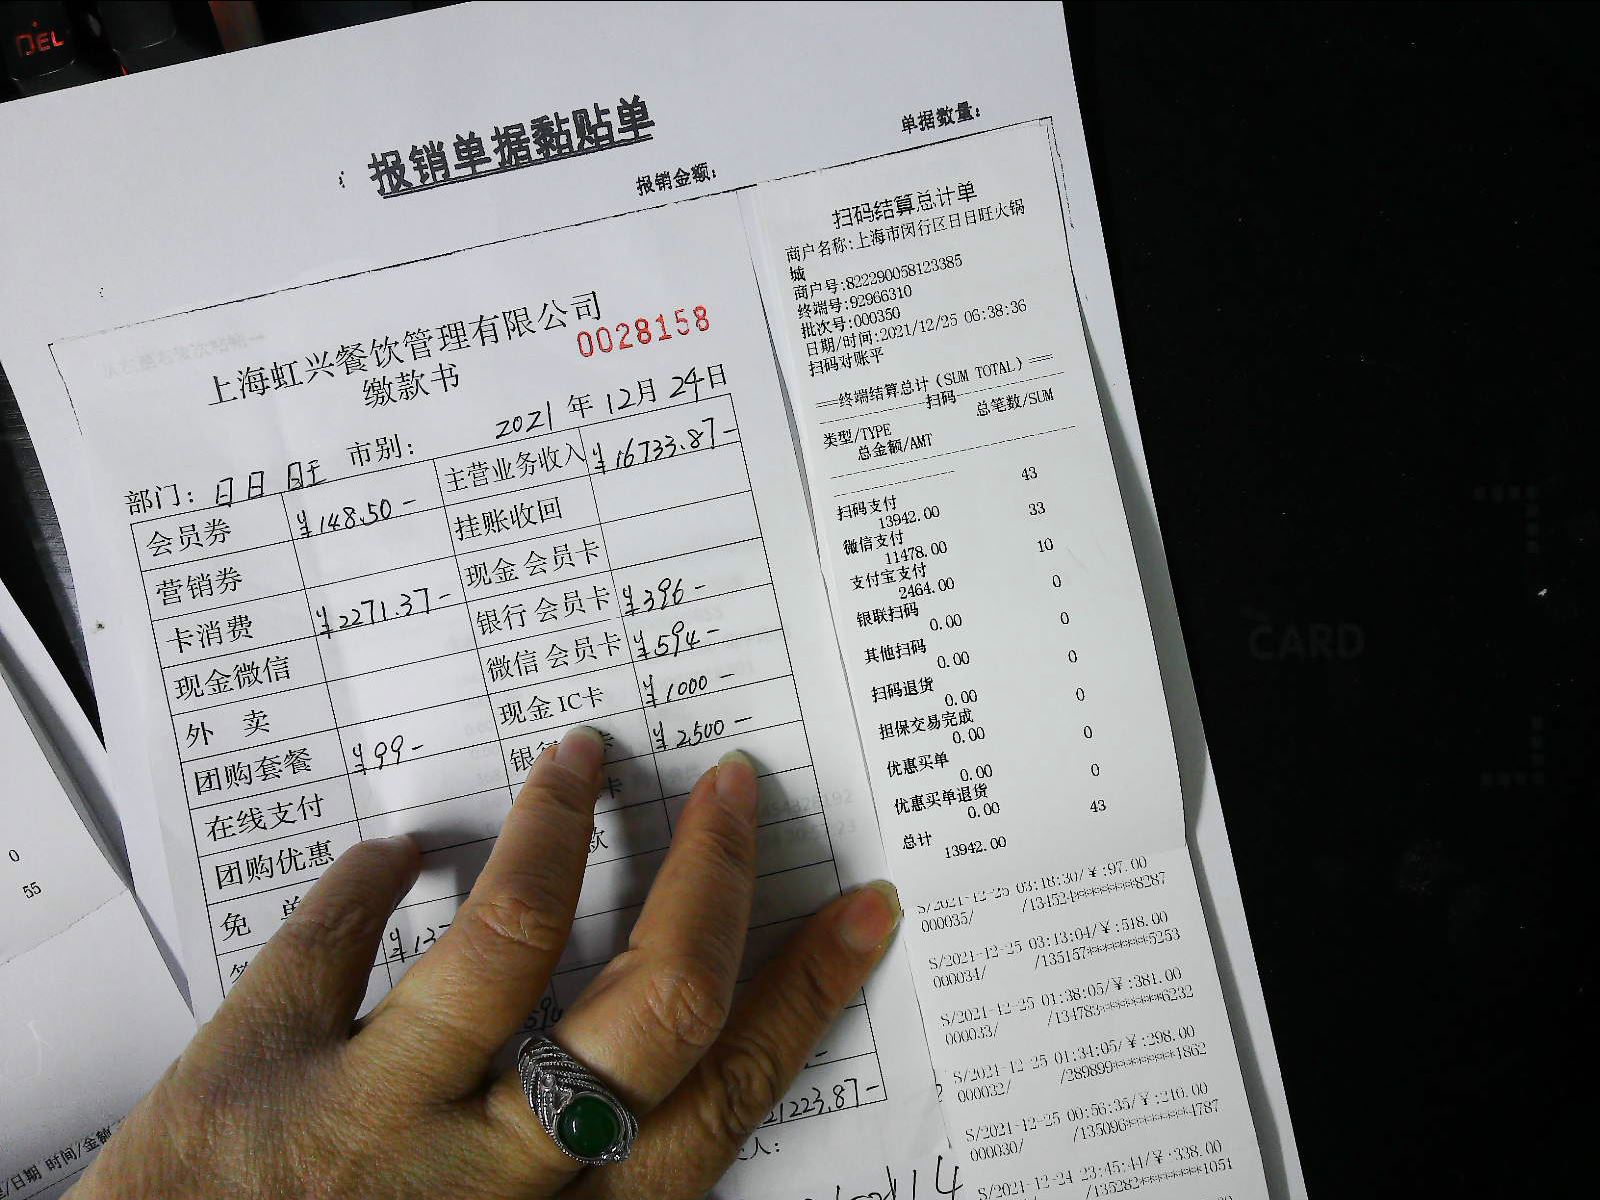 DEL
报销单据黏贴单
报销金额：
单据数量：
上海虹兴餐饮管理有限公司
0028158
缴款书
2021 年 12月 24日
部门：日日旺 市别：
会员券 ¥148.50- 主营业务收入 ¥16733.87-
营销券 挂账收回
卡消费 ¥2271.37- 现金会员卡
现金微信 银行会员卡 ¥396-
外 卖 微信会员卡 ¥594-
团购套餐 ¥99- 现金IC卡 ¥1000-
在线支付 ¥2500-
团购优惠
免
21223.87-
扫码结算总计单
商户名称:上海市闵行区日日旺火锅
城
商户号:822290058123385
终端号:92966310
批次号:000350
日期/时间:2021/12/25 06:38:36
扫码对账平
===终端结算总计(SUM TOTAL)===
扫码
类型/TYPE 总笔数/SUM
总金额/AMT
扫码支付 43
13942.00
微信支付 33
11478.00
支付宝支付 10
2464.00
银联扫码 0
0.00
其他扫码 0
0.00
扫码退货 0
0.00
担保交易完成 0
0.00
优惠买单 0
0.00
优惠买单退货 0
0.00
总计 43
13942.00
S/2021-12-25 03:18:30/¥:97.00
000035/ /134524********8287
S/2021-12-25 03:13:04/¥:518.00
000034/ /135157********5253
S/2021-12-25 01:38:05/¥:381.00
000033/ /134783********6232
S/2021-12-25 01:34:05/¥:298.00
000032/ /289899********1862
S/2021-12-25 00:56:35/¥:210.00
000030/ /135096********4787
S/2021-12-24 23:45:44/¥:338.00
/135282********1051
0
55
/日期 时间/金额
CARD